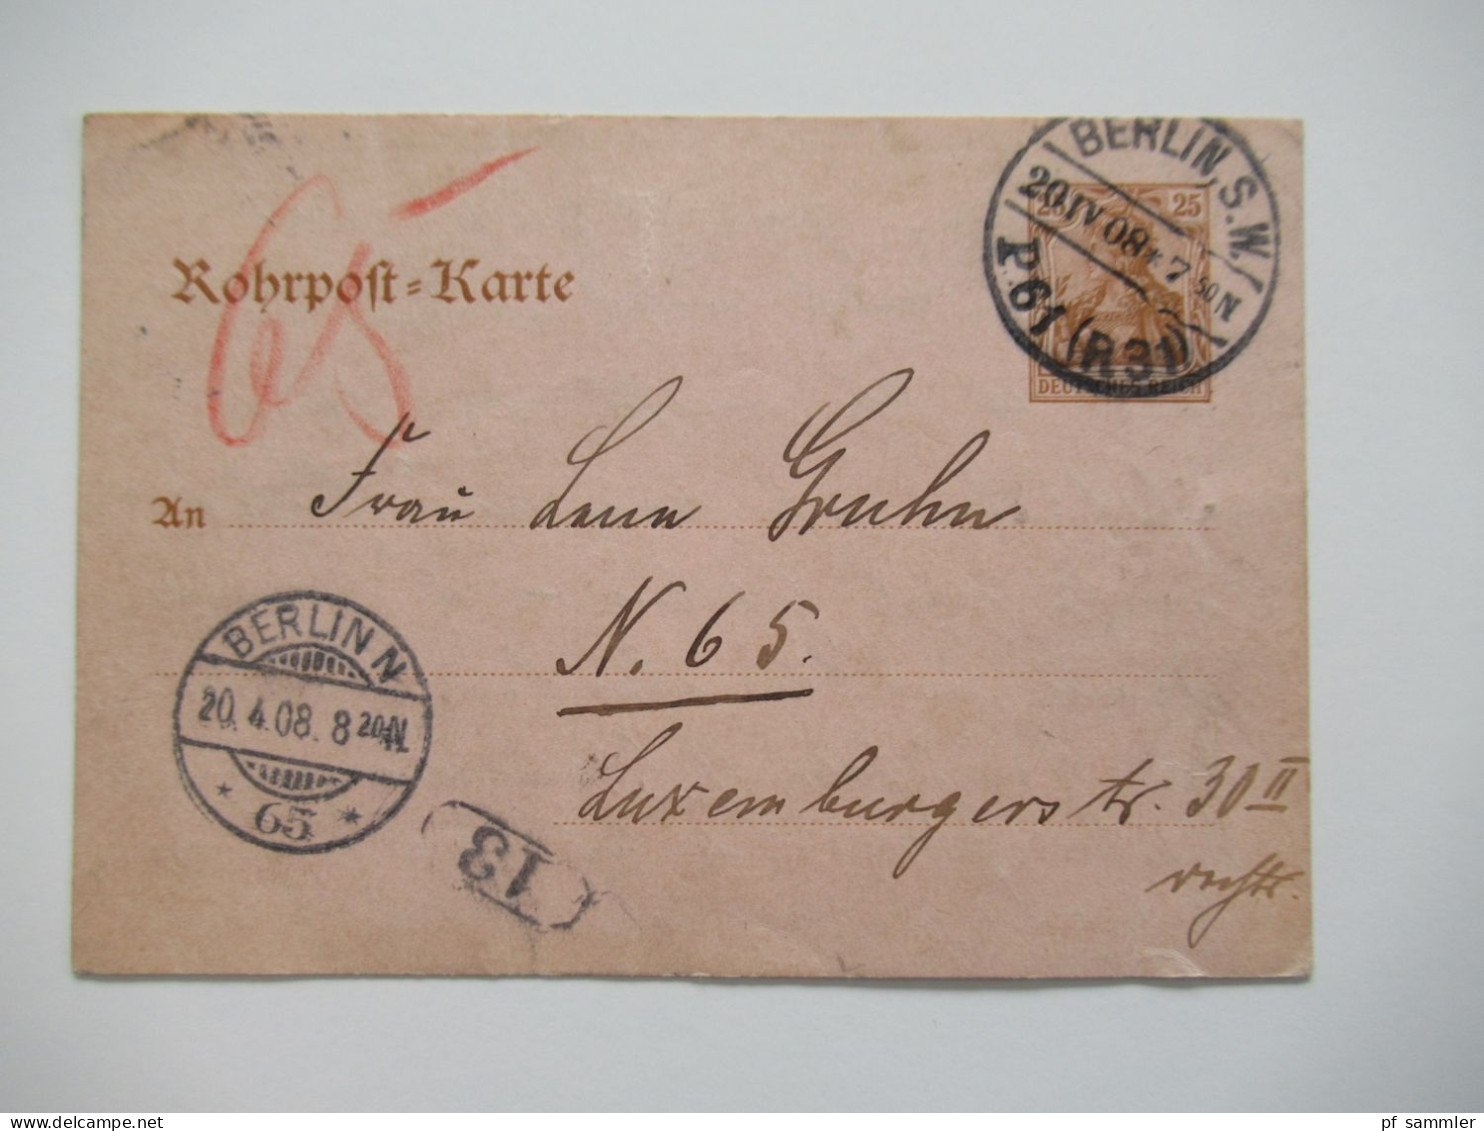 65
Rohrpost=Karte
BERLIN, S.W.
20.IV 08 * 7 50 N
P. 61 (R 31)
25 25
DEUTSCHES REICH
An Frau Lena Gruhn
N. 65.
Luxemburgerstr. 30 II
rechts.
BERLIN N
20.4.08. 8 20 N.
* 65 *
13
pf sammler